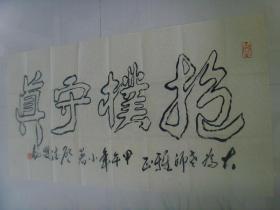 抱樸守真
大为老师雅正 甲午年小暑